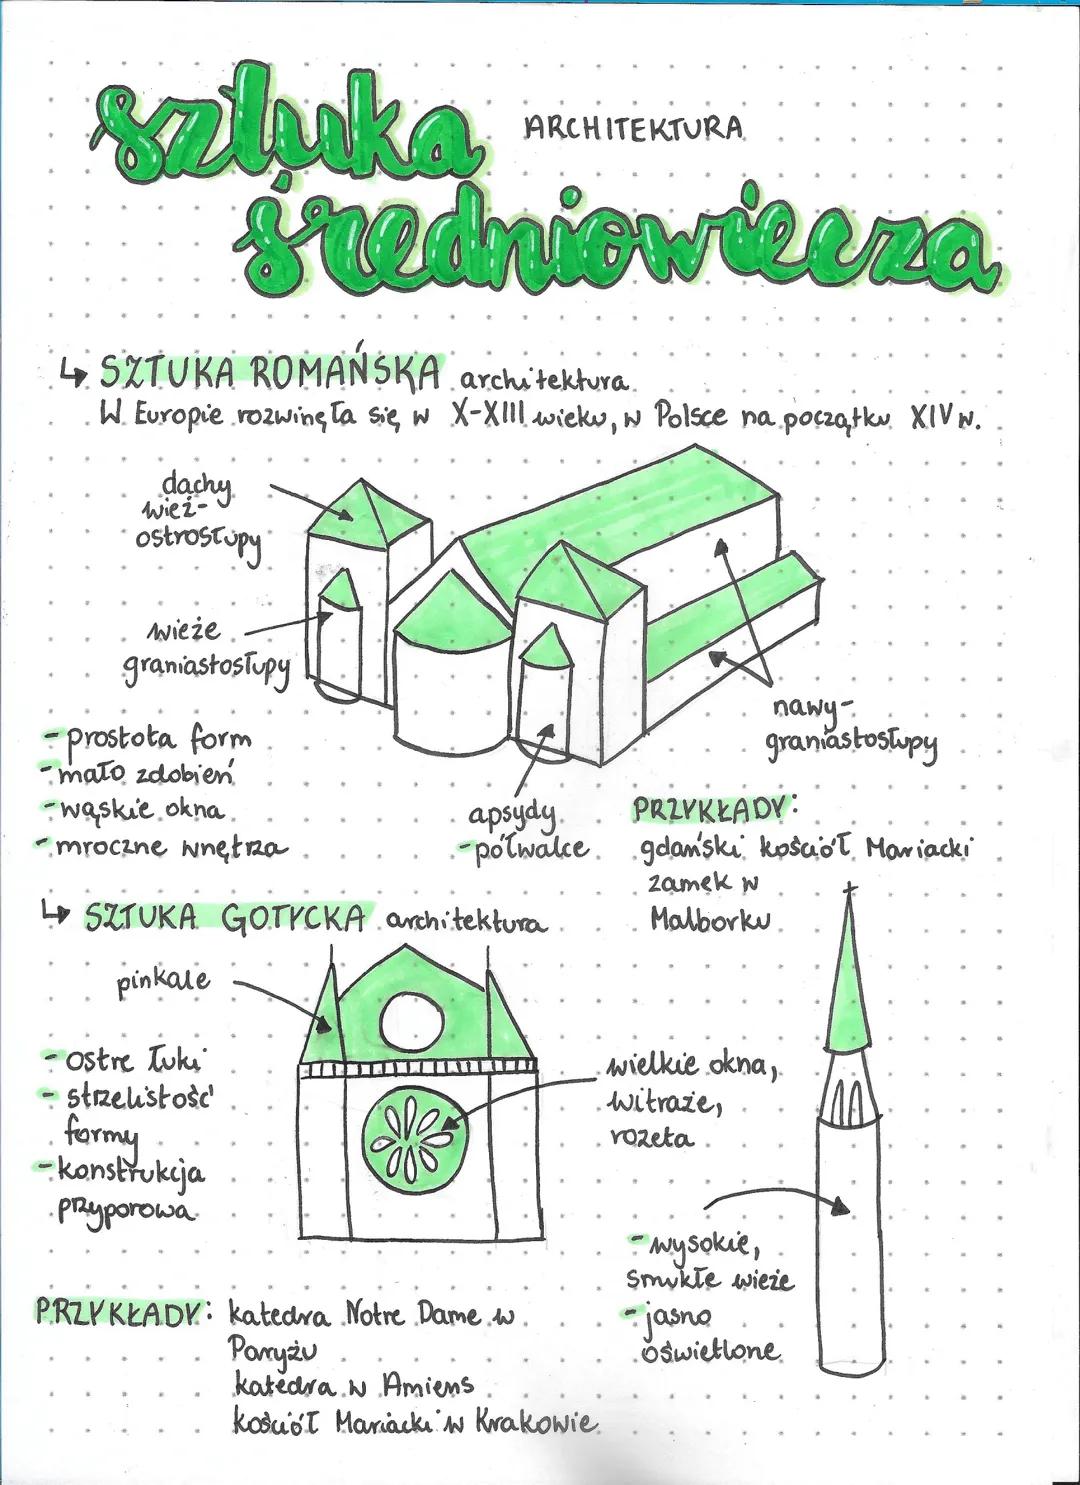 sztuka
ARCHITEKTURA
średniowiecza
↳ SZTUKA ROMAŃSKA architektura
W Europie rozwinęła się w X-XIII wieku, w Polsce na początku XIV w.
dachy
wież-
ostrosłupy
wieże
graniastosłupy
nawy-
graniastosłupy
- prostota form
- mało zdobień
- wąskie okna
- mroczne wnętrza
apsydy
- półwalce
PRZYKŁADY:
gdański kościół Mariacki
zamek w
Malborku
↳ SZTUKA GOTYCKA architektura
pinkale
- ostre łuki
- strzelistość
formy
- konstrukcja
przyporowa
wielkie okna,
witraże,
rozeta
- wysokie,
smukłe wieże
- jasno
oświetlone
PRZYKŁADY: katedra Notre Dame w
Paryżu
katedra w Amiens
kościół Mariacki w Krakowie